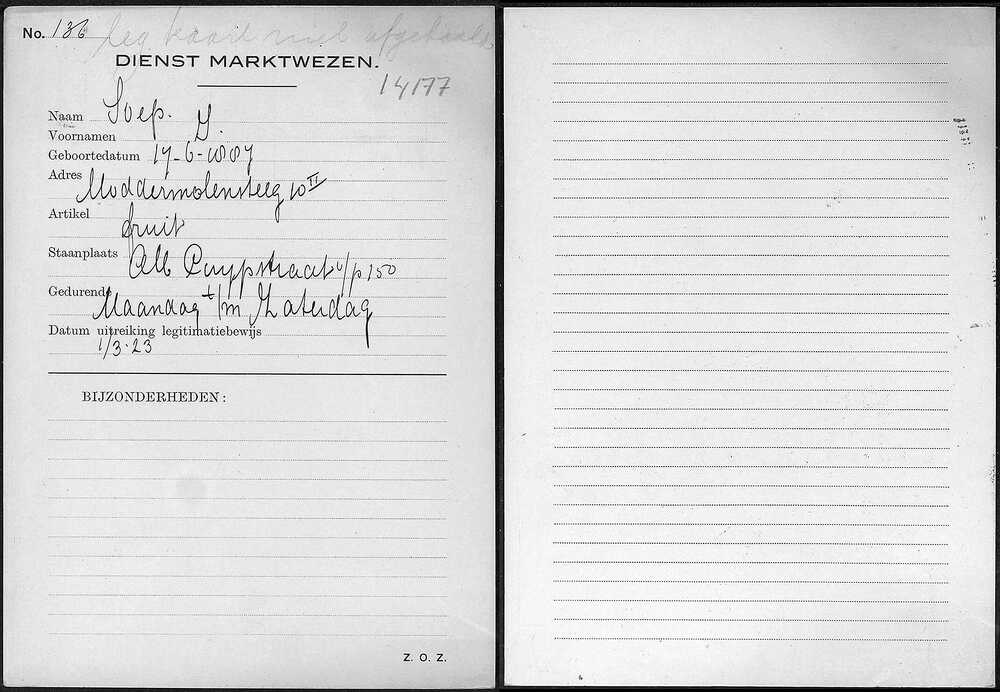 No. 136 leg kaart niet afgehaald
DIENST MARKTWEZEN.
14177
Naam Soep.
Voornamen I.
Geboortedatum 17-6-1887
Adres Moddermolensteeg 10 II
Artikel fruit
Staanplaats Alb Cuypstraat v/p 150
Gedurende Maandag t/m Zaterdag
Datum uitreiking legitimatiebewijs
1/3.23
BIJZONDERHEDEN:
Z. O. Z.